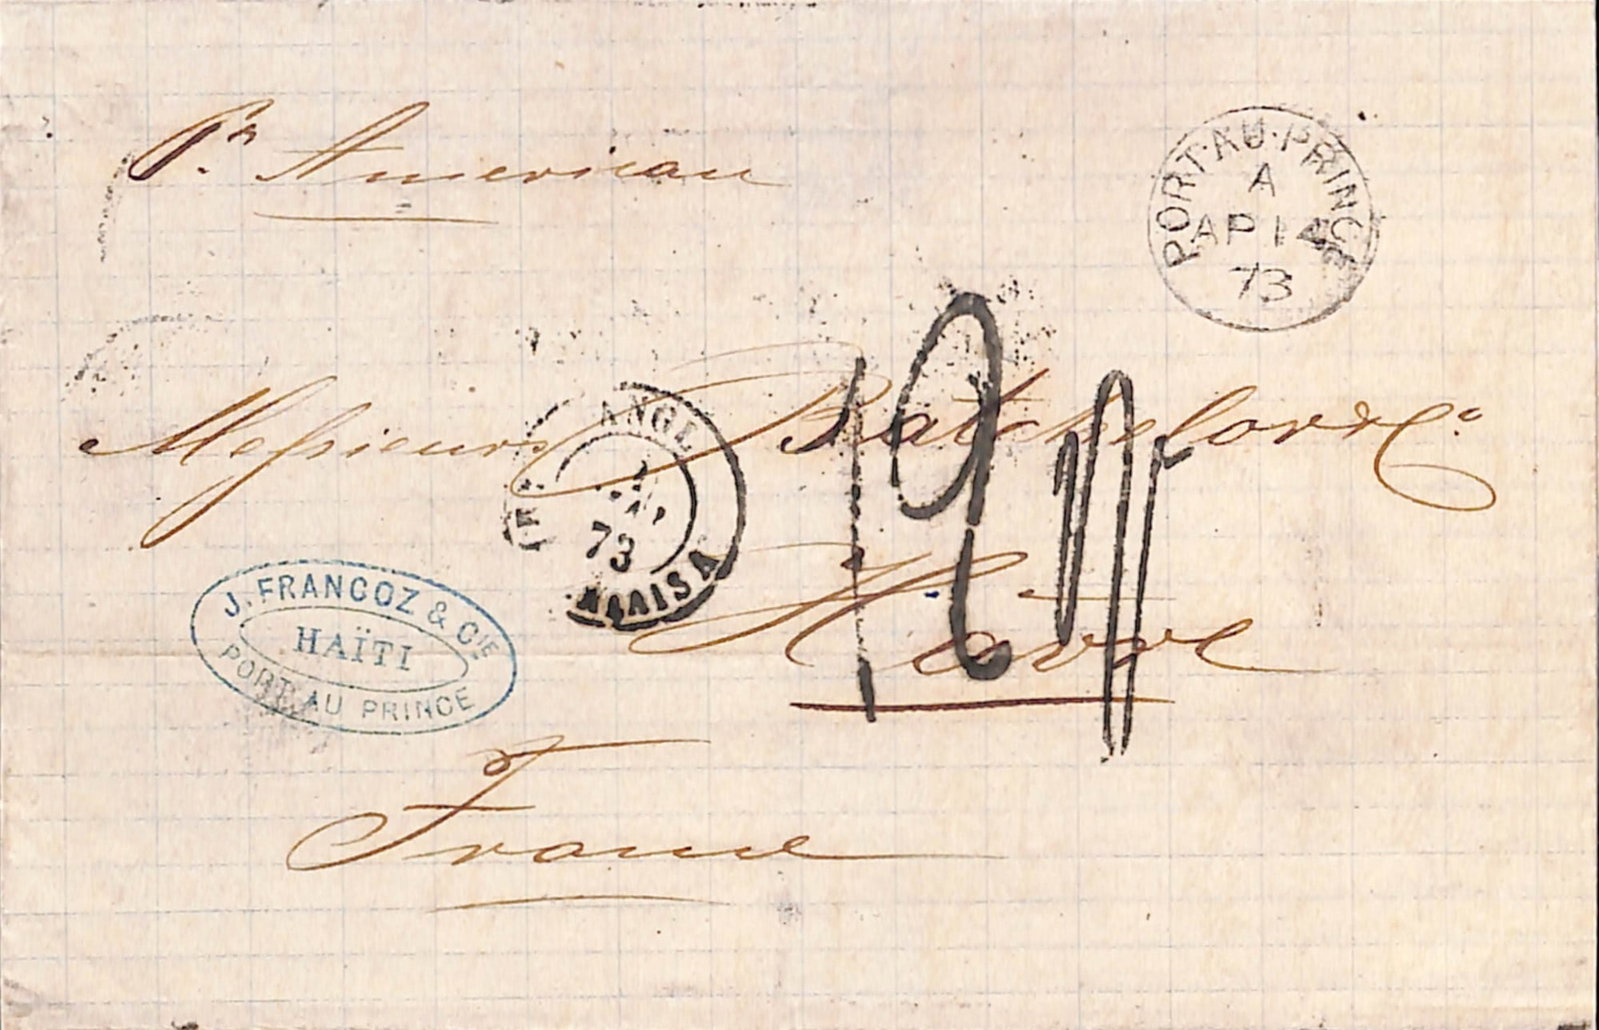 Pr. American
PORT-AU-PRINCE
A
AP 14
73
Messieurs Batchelor & Co.
ANGL
73
J. FRANCOZ & CIE
HAÏTI
PORT AU PRINCE
12
Hâvre
France